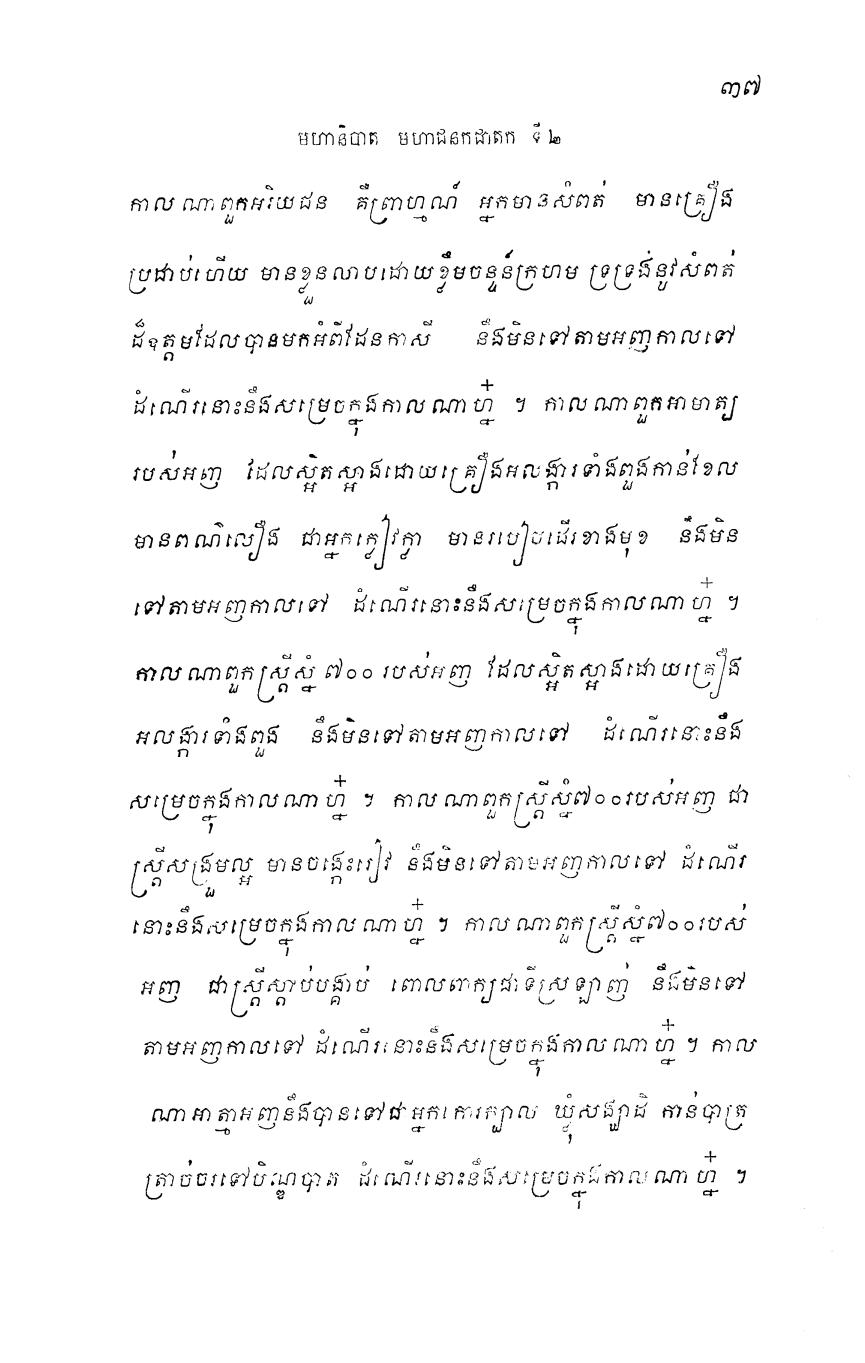 ៣៧
មហានិបាត មហាជនកជាតក ទី ២
កាលណាពួកអរិយជន គឺព្រាហ្មណ៍ អ្នកមានសំពត់ មានគ្រឿង
ប្រដាប់ហើយ មានខ្លួនលាបដោយខ្លឹមចន្ទន៍ក្រហម ទ្រទ្រង់នូវសំពត់
ដ៏ឧត្តមដែលបានមកអំពីដែនកាសី នឹងមិនទៅតាមអញកាលទៅ
ដំណើរនោះនឹងសម្រេចក្នុងកាលណាហ្ន៎ ។ កាលណាពួកអាមាត្យ
របស់អញ ដែលស្អិតស្អាងដោយគ្រឿងអលង្ការទាំងពួងកាន់ខែល
មានពណ៌លឿង ជាអ្នកក្លៀវក្លា មានរបៀបដើរខាងមុខ នឹងមិន
ទៅតាមអញកាលទៅ ដំណើរនោះនឹងសម្រេចក្នុងកាលណាហ្ន៎ ។
កាលណាពួកស្ត្រីស្នំ ៧០០ របស់អញ ដែលស្អិតស្អាងដោយគ្រឿង
អលង្ការទាំងពួង នឹងមិនទៅតាមអញកាលទៅ ដំណើរនោះនឹង
សម្រេចក្នុងកាលណាហ្ន៎ ។ កាលណាពួកស្ត្រីស្នំ៧០០របស់អញ ជា
ស្ត្រីសង្រួមល្អ មានចង្កេះរៀវ នឹងមិនទៅតាមអញកាលទៅ ដំណើរ
នោះនឹងសម្រេចក្នុងកាលណាហ្ន៎ ។ កាលណាពួកស្ត្រីស្នំ៧០០របស់
អញ ជាស្ត្រីស្តាប់បង្គាប់ ពោលពាក្យជាទីស្រឡាញ់ នឹងមិនទៅ
តាមអញកាលទៅ ដំណើរនោះនឹងសម្រេចក្នុងកាលណាហ្ន៎ ។ កាល
ណាអាត្មាអញនឹងបានទៅជាអ្នកកោរក្បាល ឃ្លុំសង្ឃាដិ កាន់បាត្រ
ត្រាច់ចរទៅបិណ្ឌបាត ដំណើរនោះនឹងសម្រេចក្នុងកាលណាហ្ន៎ ។